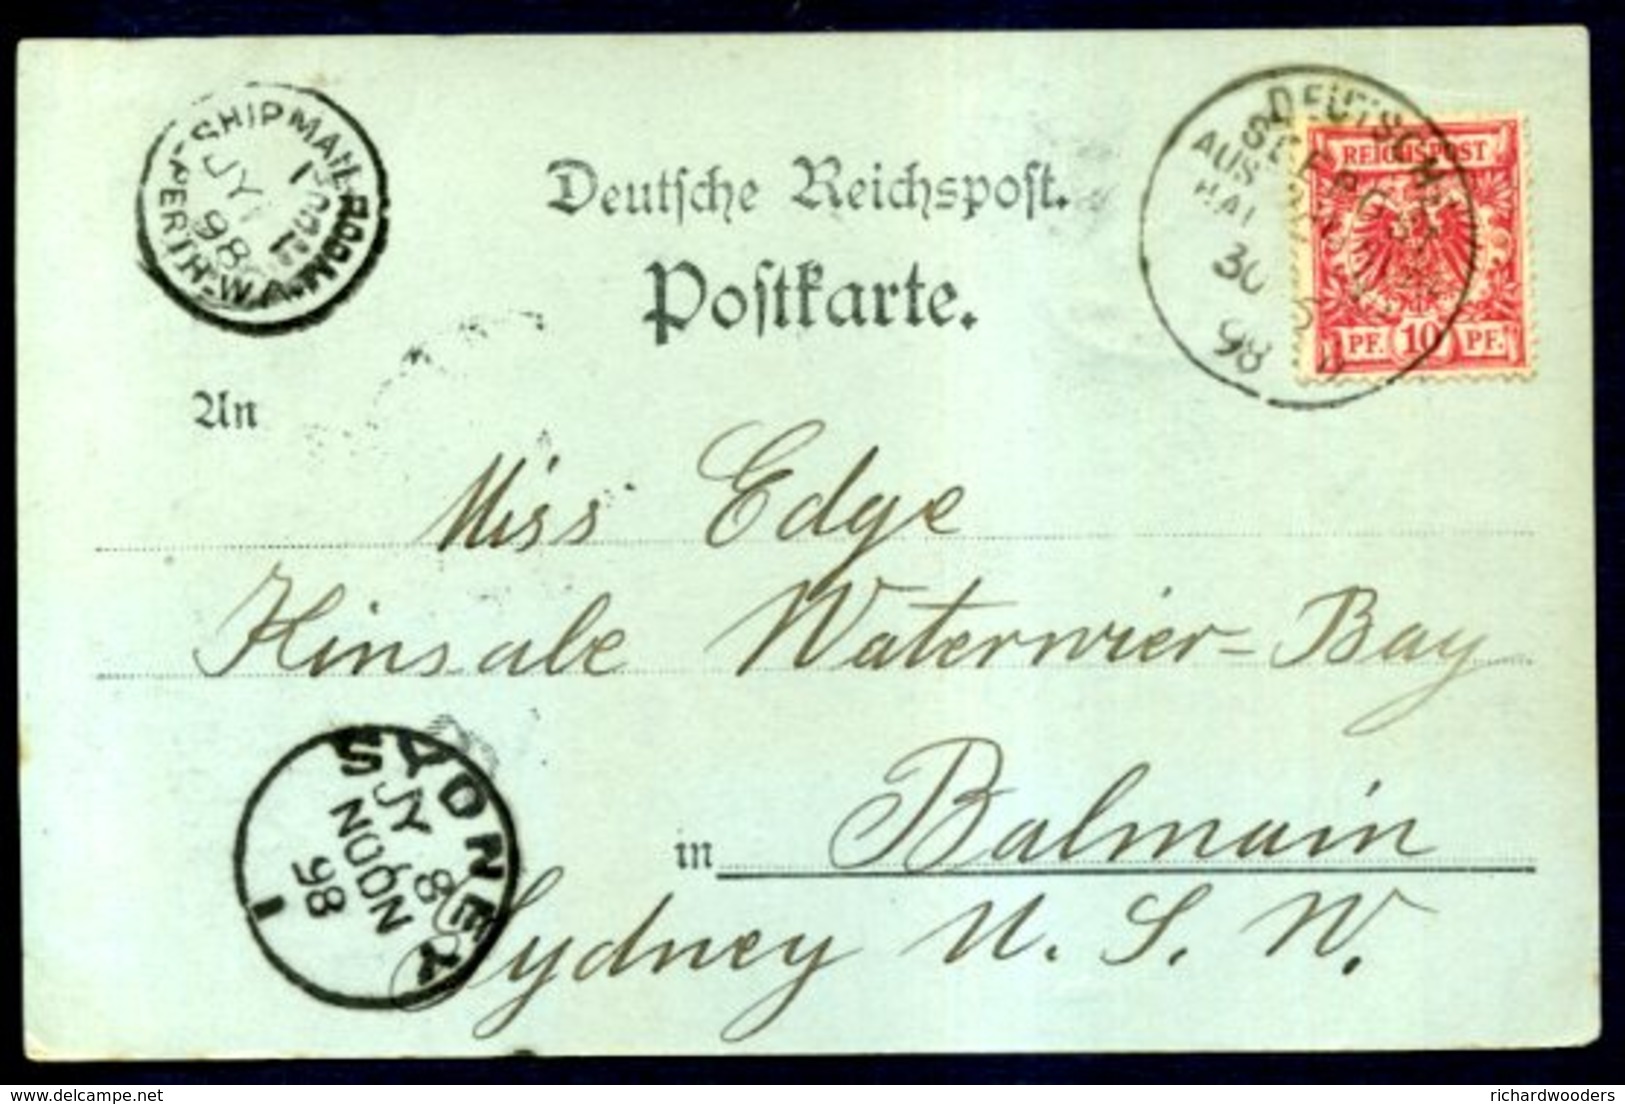 SHIP MAIL ROOM
PERTH-W.A.
JY 1
98
Deutsche Reichspost.
Postkarte.
DEUTSCHE
SEEPOST
AUS
30
98
REICHSPOST
PF. 10 PF.
An
Miss Edge
Hinsale Waterwier-Bay
in Balmain
Sydney N. S. W.
SYDNEY
JY 8
NOON
98
1
delcampe.net
richardwooders